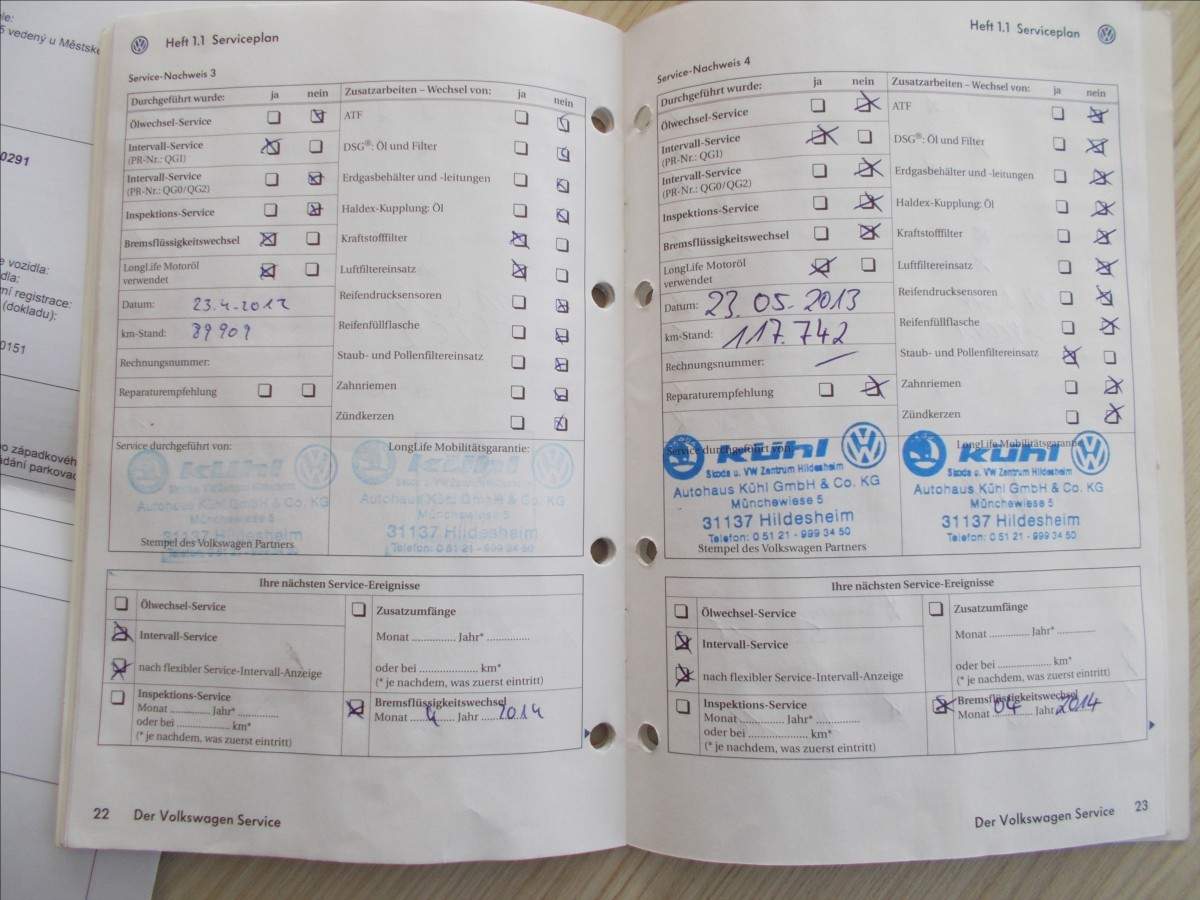 5 vedený u Městské
0291
vozidla:
dla:
ní registrace:
(dokladu):
0151
západkovéh
dání parkovac
Heft 1.1 Serviceplan
Service-Nachweis 3
Durchgeführt wurde: ja nein
Ölwechsel-Service
Intervall-Service
(PR-Nr.: QG1)
Intervall-Service
(PR-Nr.: QG0/QG2)
Inspektions-Service
Bremsflüssigkeitswechsel
LongLife Motoröl
verwendet
Datum: 23.4.2012
km-Stand: 89909
Rechnungsnummer:
Reparaturempfehlung
Zusatzarbeiten – Wechsel von: ja nein
ATF
DSG®: Öl und Filter
Erdgasbehälter und -leitungen
Haldex-Kupplung: Öl
Kraftstofffilter
Luftfiltereinsatz
Reifendrucksensoren
Reifenfüllflasche
Staub- und Pollenfiltereinsatz
Zahnriemen
Zündkerzen
Service durchgeführt von:
kühl
Autohaus Kühl GmbH & Co. KG
Münchewiese 5
31137 Hildesheim
Stempel des Volkswagen Partners
LongLife Mobilitätsgarantie:
kühl
Skoda u. VW Zentrum Hildesheim
Autohaus Kühl GmbH & Co. KG
Münchewiese 5
31137 Hildesheim
Telefon: 0 51 21 - 999 34 50
Ihre nächsten Service-Ereignisse
Ölwechsel-Service
Intervall-Service
nach flexibler Service-Intervall-Anzeige
Inspektions-Service
Monat .............. Jahr* ..............
oder bei .................... km*
(* je nachdem, was zuerst eintritt)
Zusatzumfänge
Monat .............. Jahr* ..............
oder bei .................... km*
(* je nachdem, was zuerst eintritt)
Bremsflüssigkeitswechsel
Monat 4 Jahr 2014
22 Der Volkswagen Service
Heft 1.1 Serviceplan
Service-Nachweis 4
Durchgeführt wurde: ja nein
Ölwechsel-Service
Intervall-Service
(PR-Nr.: QG1)
Intervall-Service
(PR-Nr.: QG0/QG2)
Inspektions-Service
Bremsflüssigkeitswechsel
LongLife Motoröl
verwendet
Datum: 23.05.2013
km-Stand: 117.742
Rechnungsnummer: –
Reparaturempfehlung
Zusatzarbeiten – Wechsel von: ja nein
ATF
DSG®: Öl und Filter
Erdgasbehälter und -leitungen
Haldex-Kupplung: Öl
Kraftstofffilter
Luftfiltereinsatz
Reifendrucksensoren
Reifenfüllflasche
Staub- und Pollenfiltereinsatz
Zahnriemen
Zündkerzen
Service durchgeführt von:
kühl
Skoda u. VW Zentrum Hildesheim
Autohaus Kühl GmbH & Co. KG
Münchewiese 5
31137 Hildesheim
Telefon: 0 51 21 - 999 34 50
Stempel des Volkswagen Partners
LongLife Mobilitätsgarantie
kühl
Skoda u. VW Zentrum Hildesheim
Autohaus Kühl GmbH & Co. KG
Münchewiese 5
31137 Hildesheim
Telefon: 0 51 21 - 999 34 50
Ihre nächsten Service-Ereignisse
Ölwechsel-Service
Intervall-Service
nach flexibler Service-Intervall-Anzeige
Inspektions-Service
Monat .............. Jahr* ..............
oder bei .................... km*
(* je nachdem, was zuerst eintritt)
Zusatzumfänge
Monat .............. Jahr* ..............
oder bei .................... km*
(* je nachdem, was zuerst eintritt)
Bremsflüssigkeitswechsel
Monat 04 Jahr 2014
Der Volkswagen Service 23